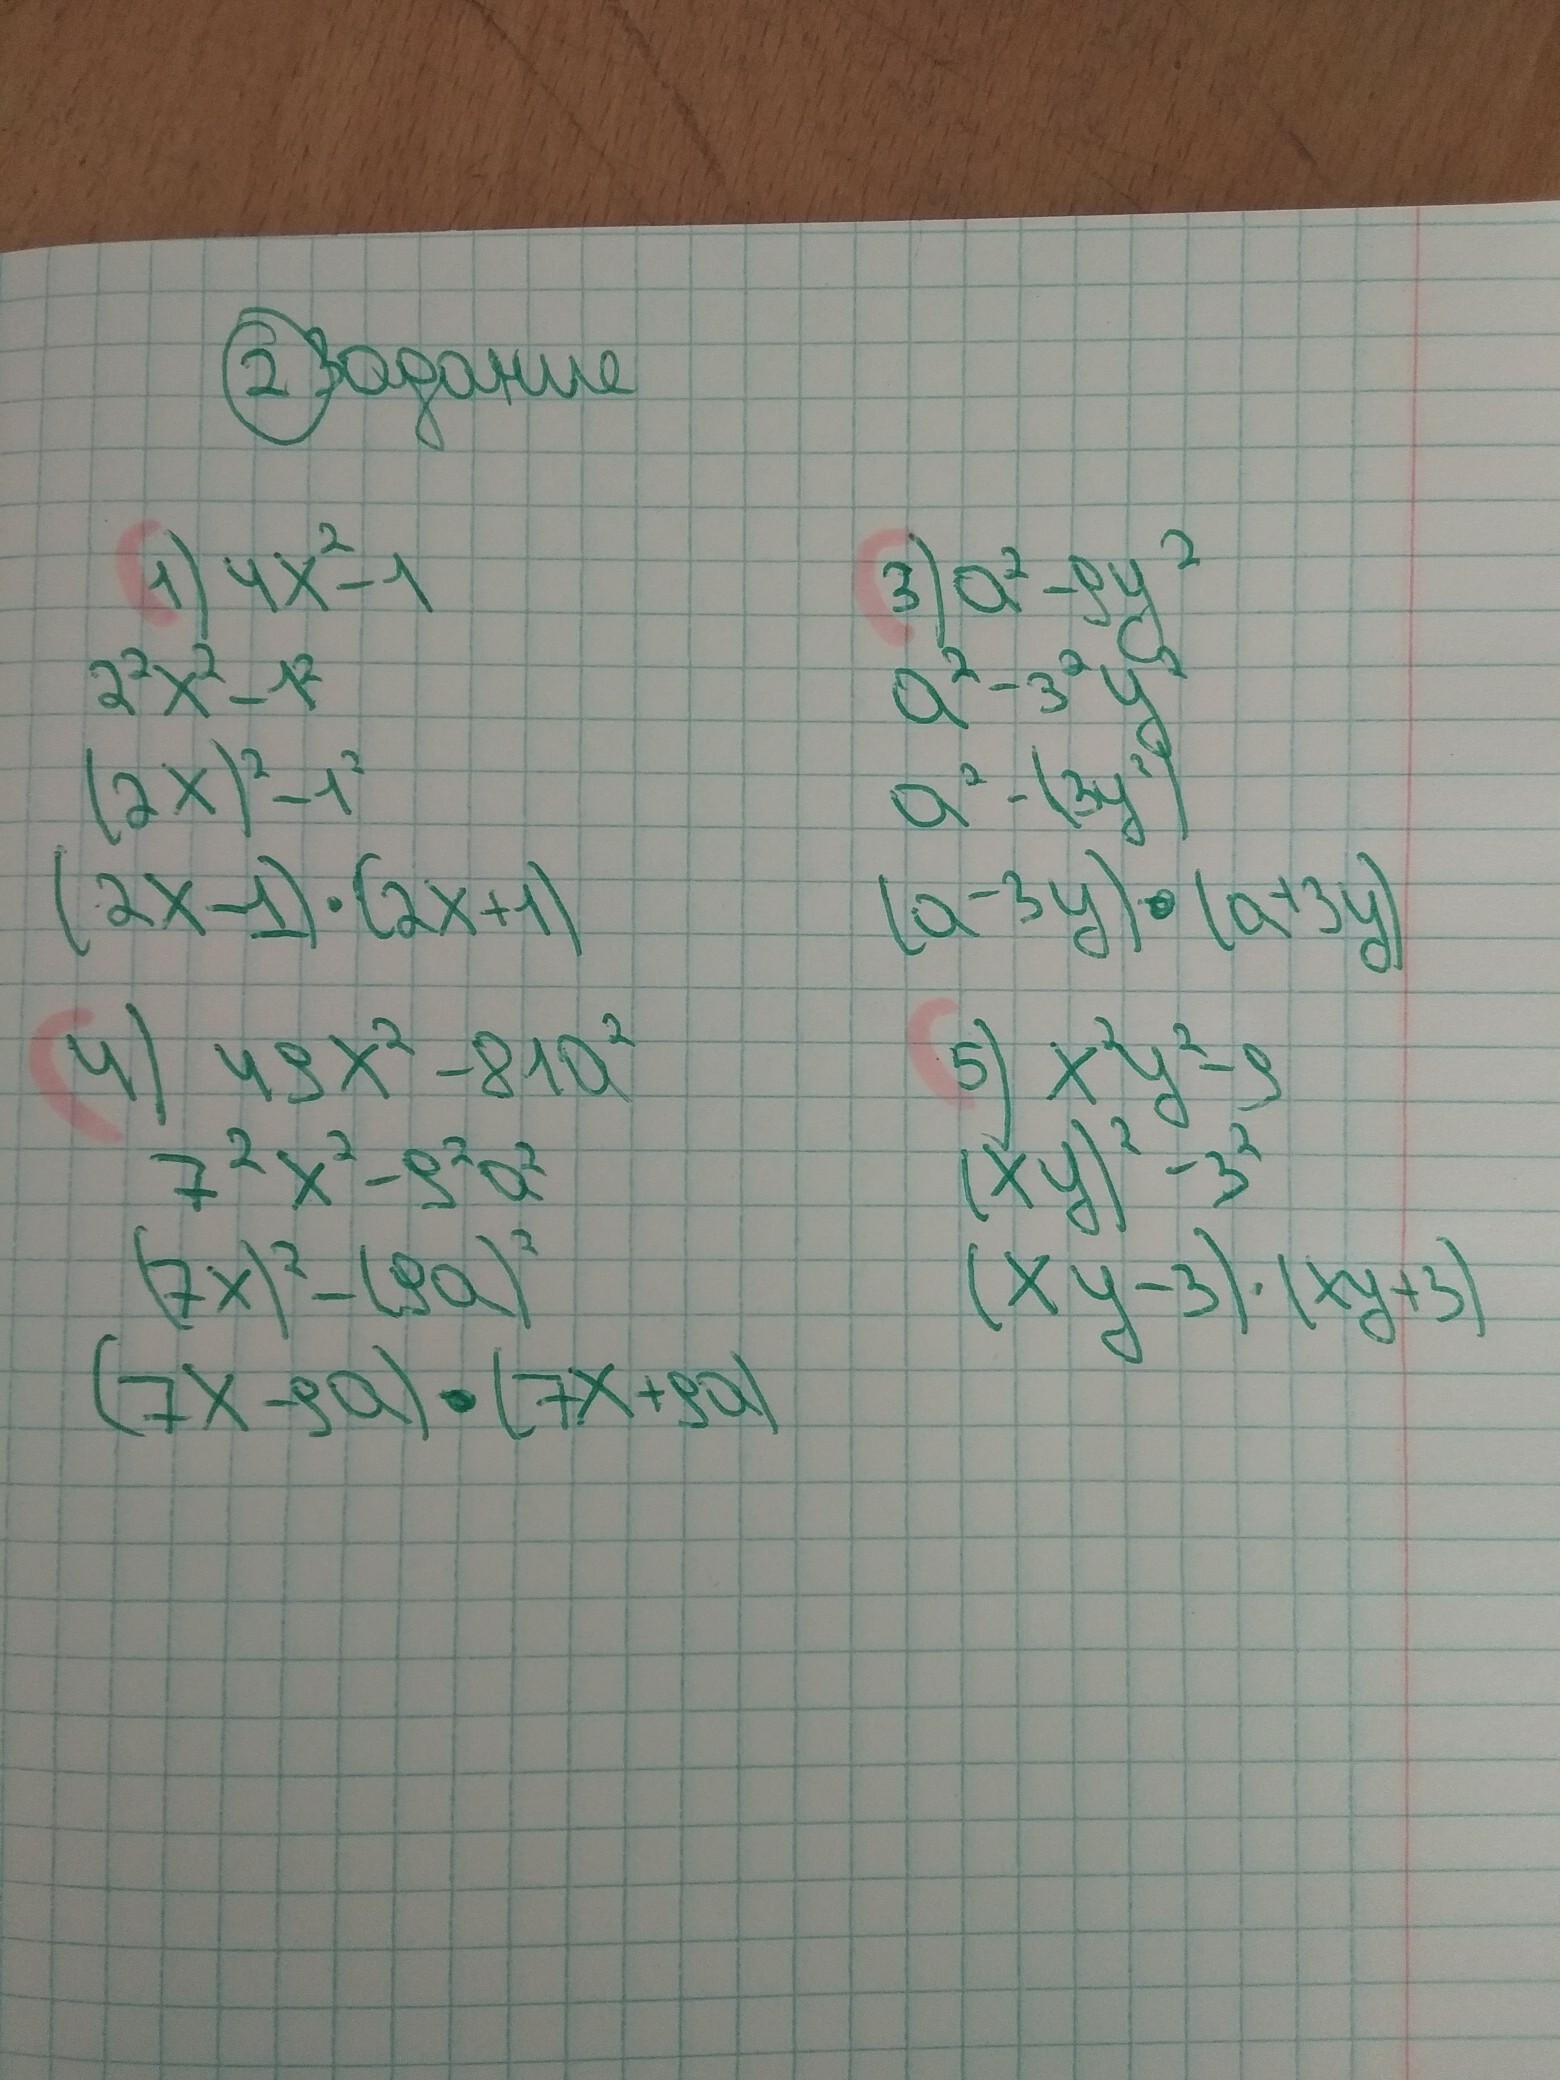 2 Задание
1) 4x² - 1
2²x² - 1²
(2x)² - 1²
(2x - 1) · (2x + 1)
3) a² - 9y²
a² - 3²y²
a² - (3y²)
(a - 3y) · (a + 3y)
4) 49x² - 81a²
7²x² - 9²a²
(7x)² - (9a)²
(7x - 9a) · (7x + 9a)
5) x²y² - 9
(xy)² - 3²
(xy - 3) · (xy + 3)